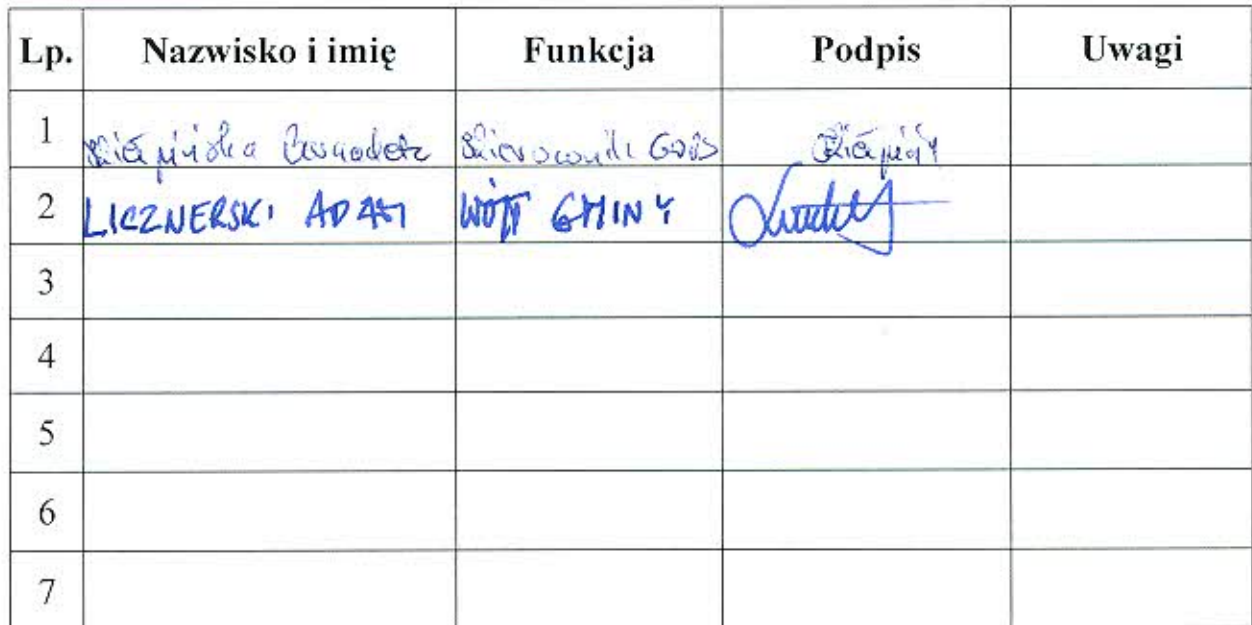 Lp. Nazwisko i imię Funkcja Podpis Uwagi
1 Bernadeta Kierownik GOPS
2 LICZNERSKI ADAM WÓJT GMINY
3
4
5
6
7